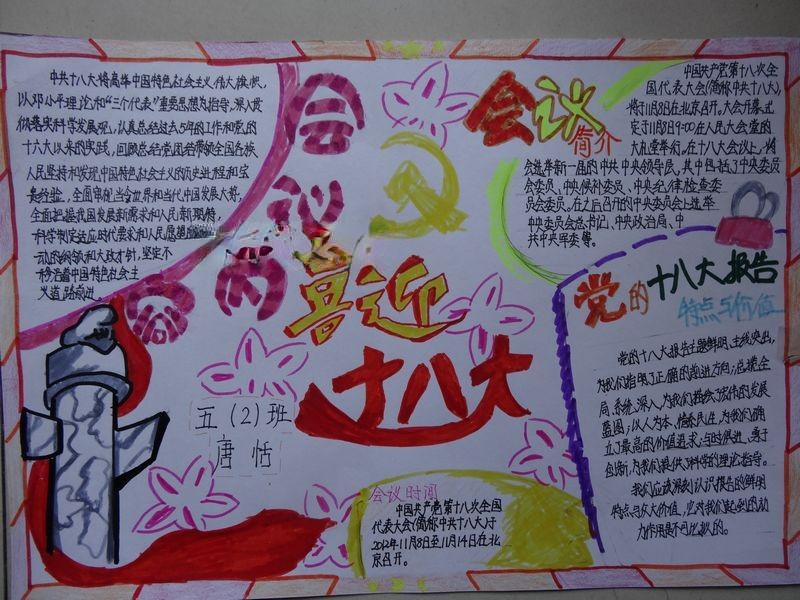 中共十八大将高举中国特色社会主义伟大旗帜,
以邓小平理论和“三个代表”重要思想为指导,深入贯
彻落实科学发展观,认真总结过去5年的工作和党的
十六大以来的实践,回顾总结党团结带领全国各族
人民坚持和发展中国特色社会主义的历史进程和宝
贵经验,全面审视当今世界和当代中国发展大势,
全面把握我国发展新需求和人民新期待,
科学制定适应时代要求和人民愿望
动的纲领和大政方针,坚定不
移沿着中国特色社会主
义道路前进。
会
议
内
容
会议
简介
中国共产党第十八次全
国代表大会(简称中共十八大),
将于11月8日在北京召开。大会开幕式
定于11月8日9:00在人民大会堂的
大礼堂举行。在十八大会议上,将
会选举新一届的中共中央领导层,其中包括了中央委员
会委员、中央候补委员、中央纪律检查委
员会委员。在之后召开的中央委员会上选举
中央委员会总书记、中央政治局、中
共中央军委等。
喜迎
十八大
五(2)班
唐恬
党的十八大报告
特点与价值
党的十八大报告主题鲜明,主线突出,
为我们指明了正确的前进方向;总揽全
局、系统、深入,为我们描绘了宏伟的发展
蓝图;以人为本、情系民生,为我们确
立了最高的价值追求;与时俱进、勇于
创新,为我们提供了科学的理论指导。
我们应该深刻认识报告的鲜明
特点与众大价值,它对我们起到的动
力作用是不可比拟的。
会议时间
中国共产党第十八次全国
代表大会(简称中共十八大)于
2012年11月8日至11月14日在北
京召开。